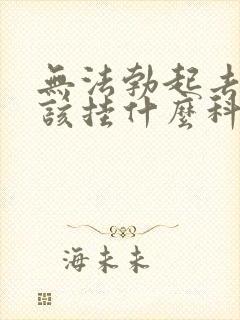 無法勃起去
該掛什麼科
海未未